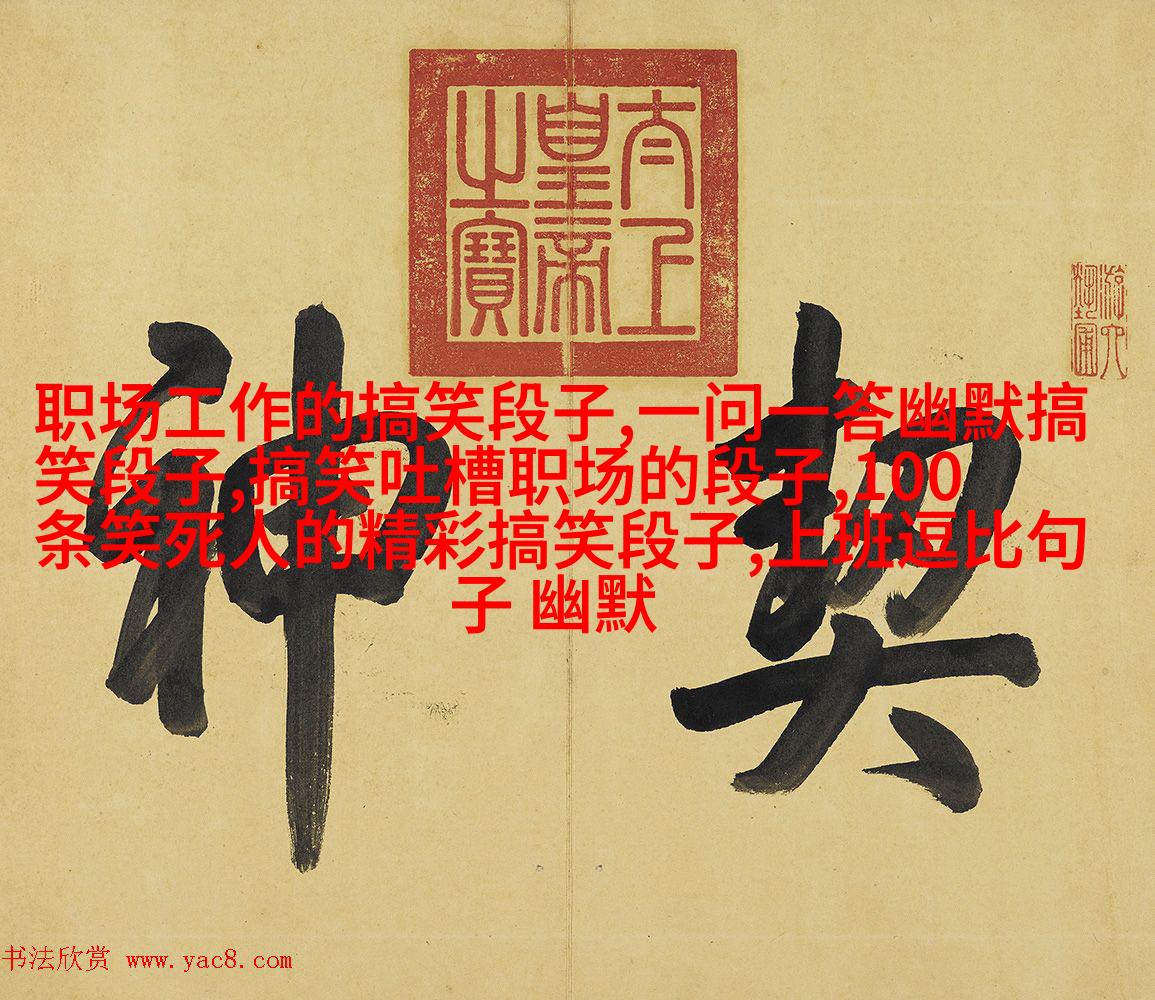 太上
皇帝
之寶
游六
藝圃
職场工作的搞笑段子,一问一答幽默搞
笑段子,搞笑吐槽职场的段子,100
条笑死人的精彩搞笑段子,上班逗比句
子 幽默
契神
书法欣赏 www.yac8.com